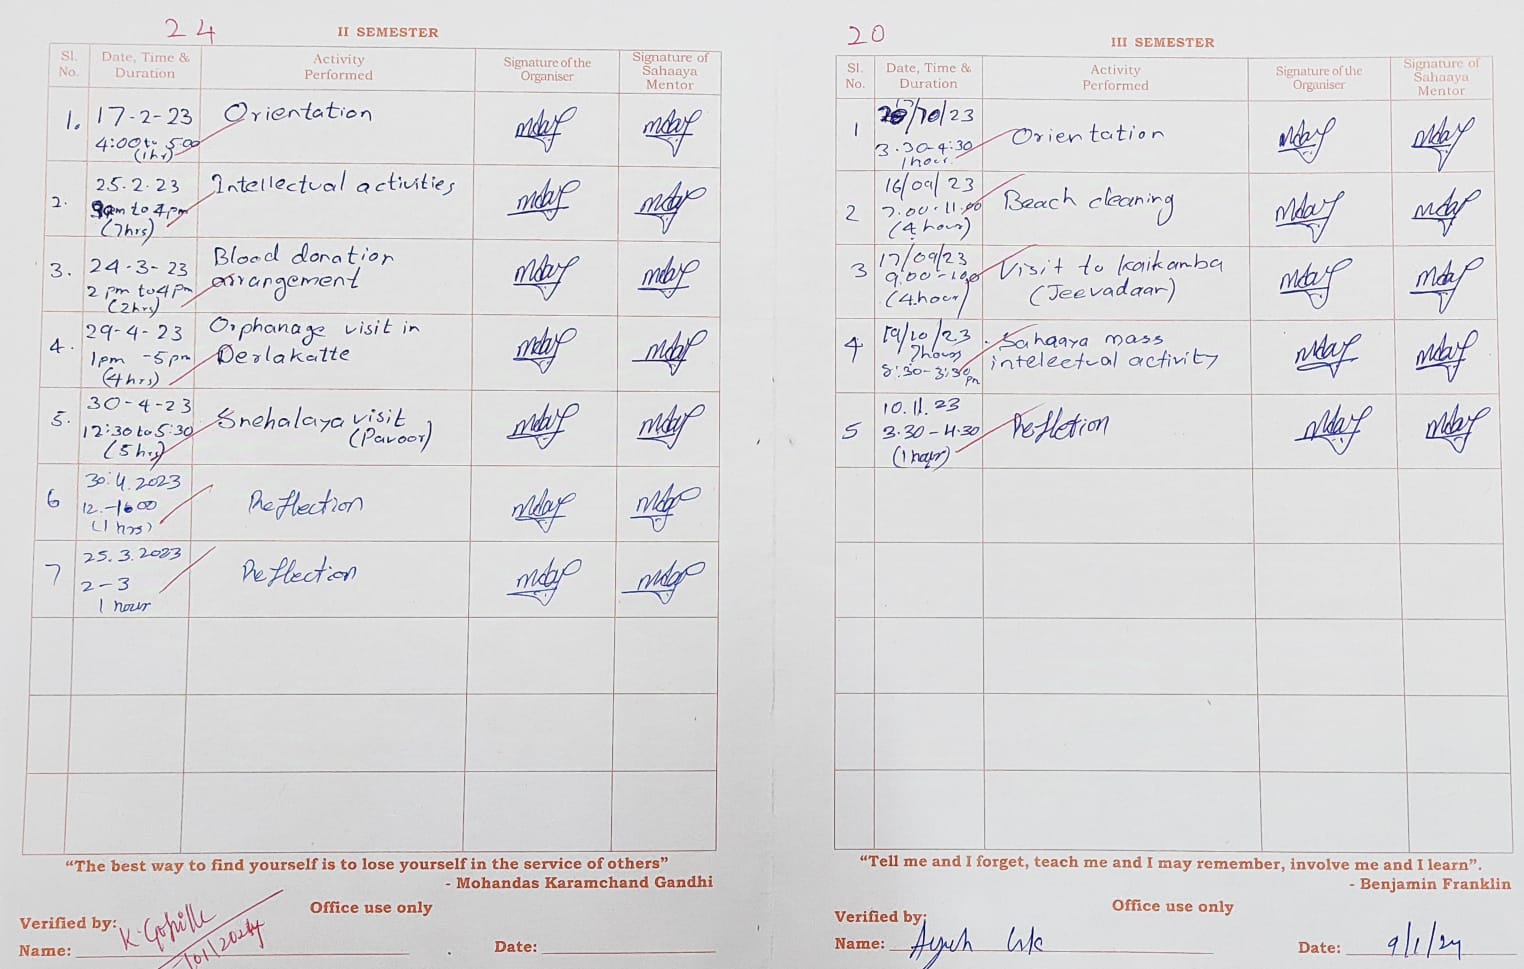 24
II SEMESTER
Sl. No.
Date, Time & Duration
Activity Performed
Signature of the Organiser
Signature of Sahaaya Mentor
1.
17-2-23
4:00 to 5:00
(1hr)
Orientation
2.
25.2.23
9am to 4pm
(7hrs)
Intellectual activities
3.
24-3-23
2 pm to 4 pm
(2hrs)
Blood donation
arrangement
4.
29-4-23
1pm -5pm
(4hrs)
Orphanage visit in
Derlakatte
5.
30-4-23
12:30 to 5:30
(5hrs)
Snehalaya visit
(Pavoor)
6
30.4.2023
(1 hrs)
Reflection
7
25.3.2023
2-3
1 hour
Reflection
"The best way to find yourself is to lose yourself in the service of others"
- Mohandas Karamchand Gandhi
Office use only
Verified by:
Name:
Date:
20
III SEMESTER
Sl. No.
Date, Time & Duration
Activity Performed
Signature of the Organiser
Signature of Sahaaya Mentor
1
/10/23
3.30-4:30
1hour.
Orientation
2
16/09/23
7.00-11.00
(4 hour)
Beach cleaning
3
17/09/23
9.00-1.00
(4 hour)
Visit to Kaikamba
(Jeevadaar)
4
19/10/23
7hours
8:30-3:30 pm
Sahaaya mass
intelectual activity
5
10.11.23
3.30-4.30
(1 hour)
Refletion
"Tell me and I forget, teach me and I may remember, involve me and I learn".
- Benjamin Franklin
Office use only
Verified by:
Name:
Date: 9/1/24